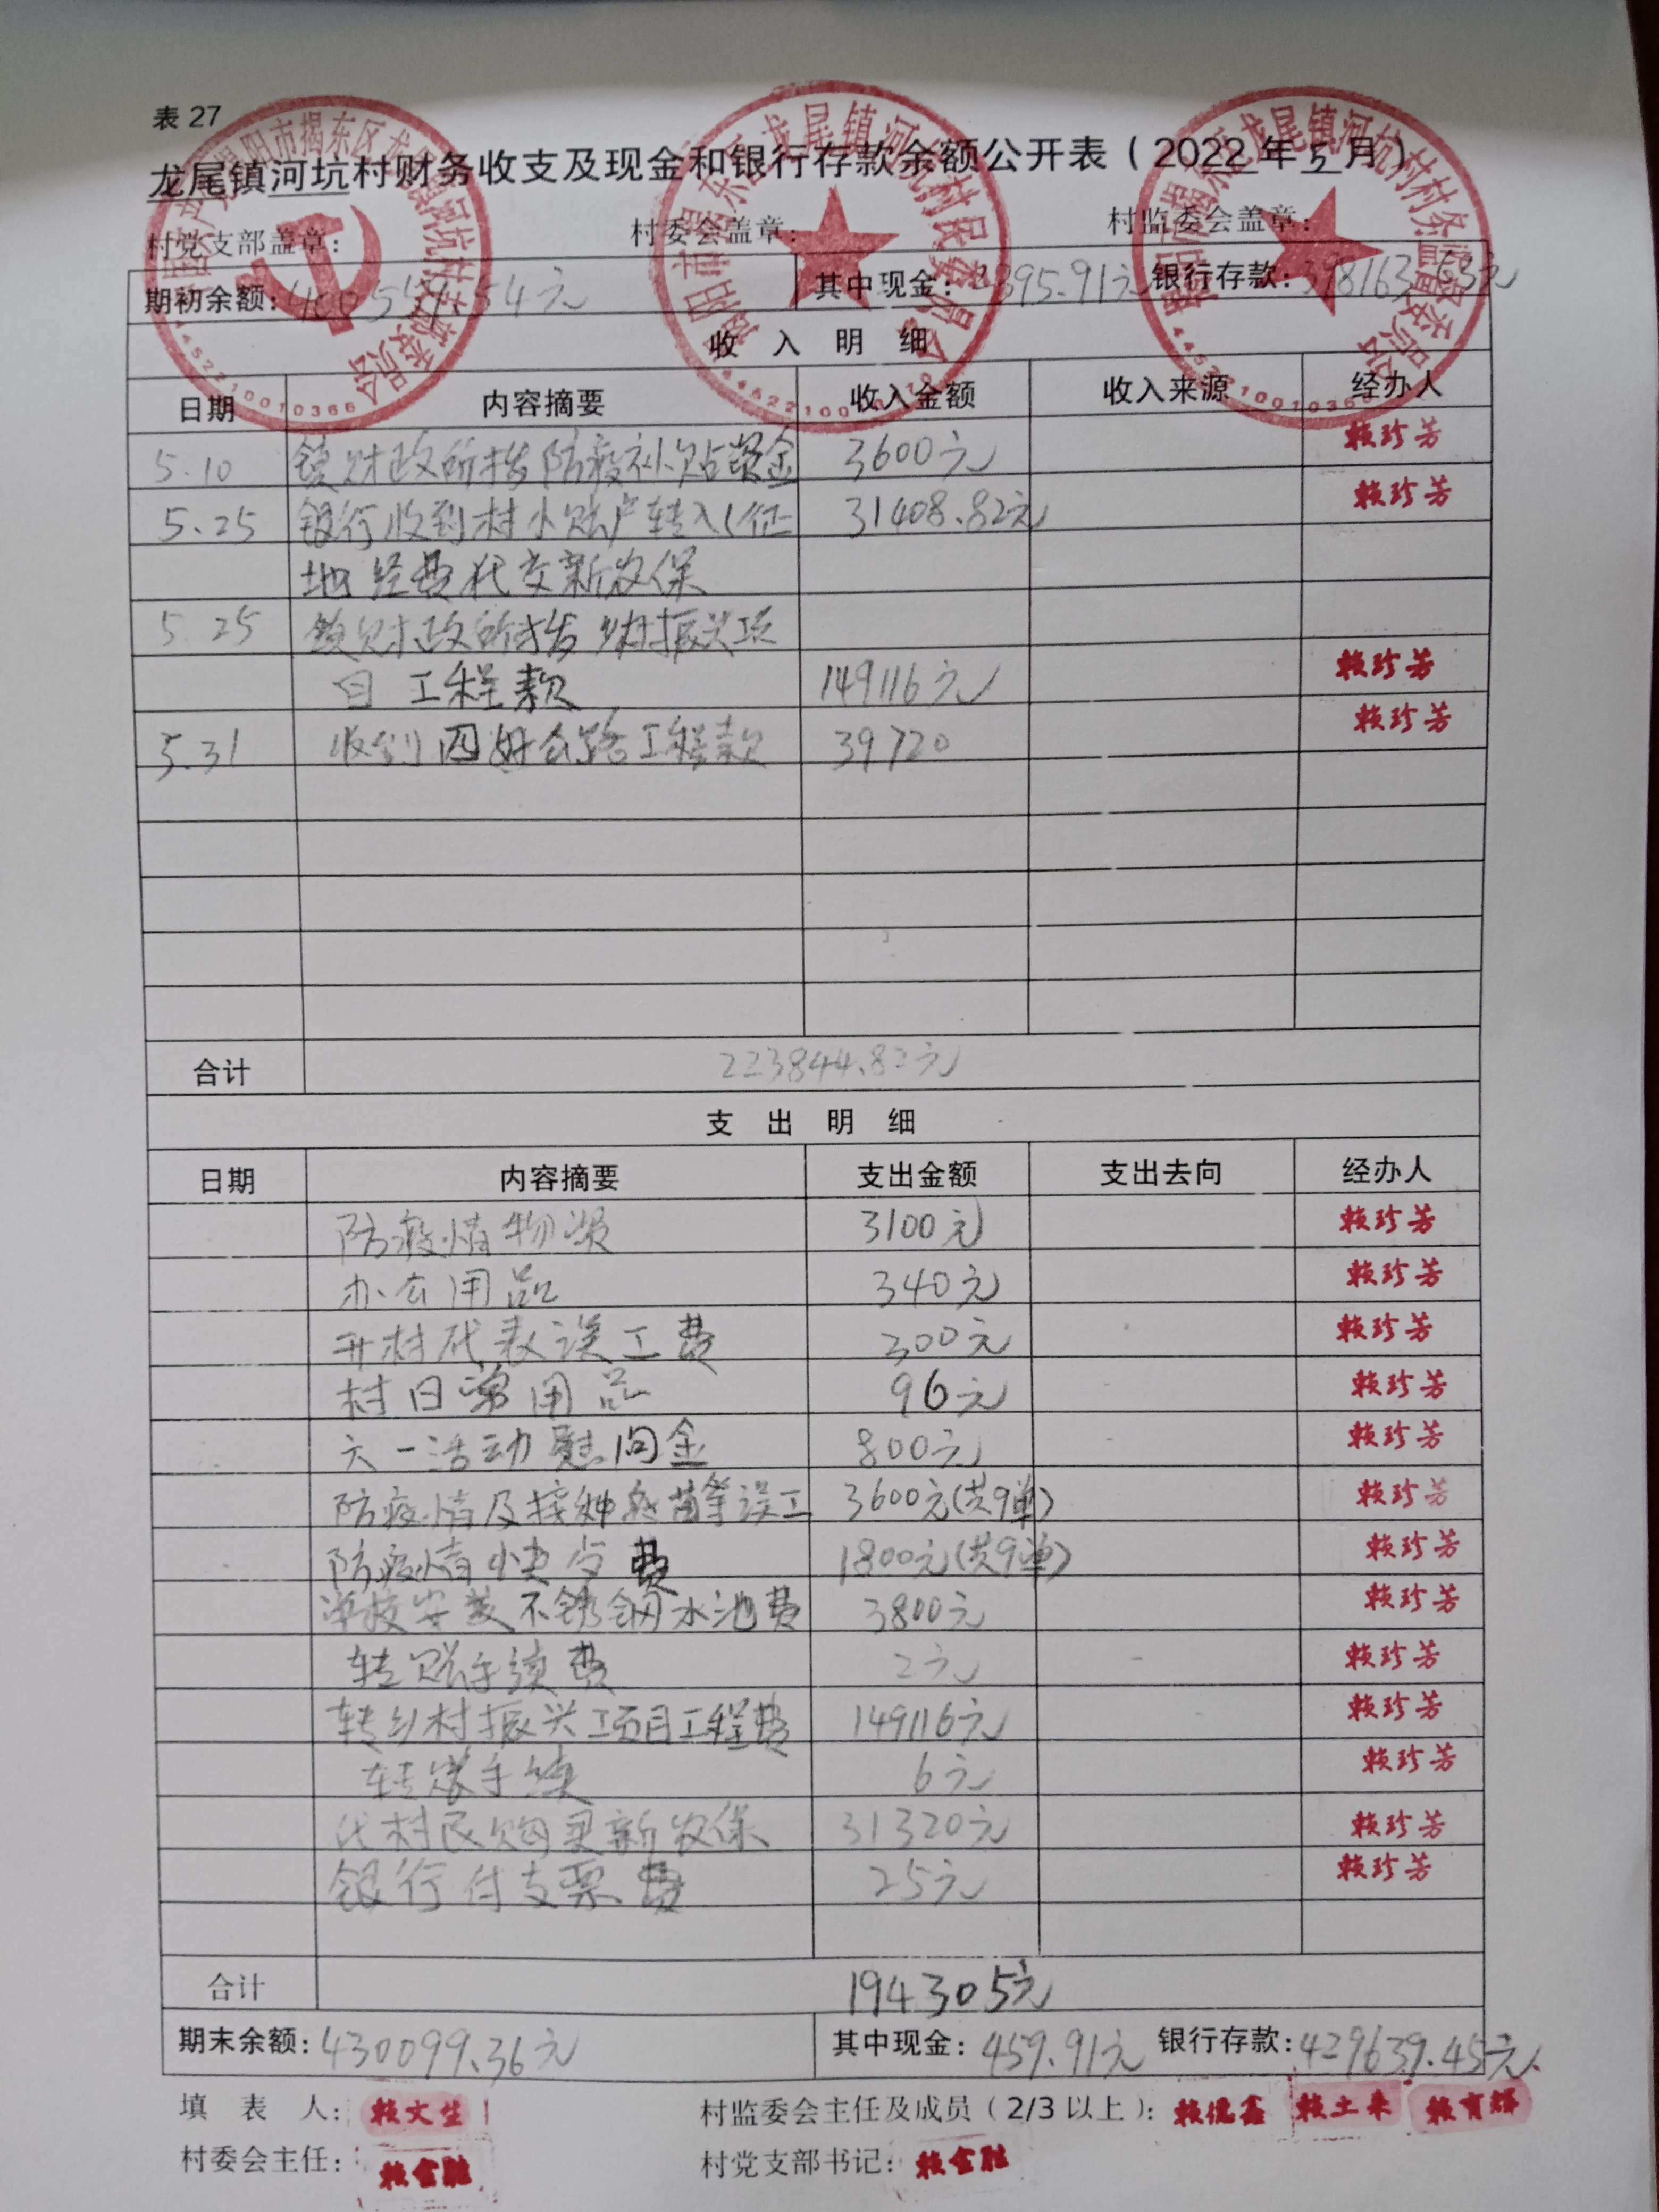 表 27
龙尾镇河坑村财务收支及现金和银行存款余额公开表（2022 年 5 月）
村党支部盖章： 村委会盖章： 村监委会盖章：
期初余额：400559.54元 其中现金：2395.91元 银行存款：398163.63元
收 入 明 细
日期 内容摘要 收入金额 收入来源 经办人
5.10 镇财政所拨防疫补贴资金 3600元 赖珍芳
5.25 银行收到村小账户转入(征 31408.82元 赖珍芳
地经费代交新农保
5.25 镇财政所拨乡村振兴项
目工程款 149116元 赖珍芳
5.31 收到四好公路工程款 39720 赖珍芳
合计 223844.82元
支 出 明 细
日期 内容摘要 支出金额 支出去向 经办人
防疫情物资 3100元 赖珍芳
办公用品 340元 赖珍芳
开村代表误工费 300元 赖珍芳
村日常用品 96元 赖珍芳
六一活动慰问金 800元 赖珍芳
防疫情及接种疫苗等误工 3600元(共9单) 赖珍芳
防疫情快歺费 1800元(共9单) 赖珍芳
学校安装不锈钢水池费 3800元 赖珍芳
转账手续费 2元 赖珍芳
转乡村振兴项目工程费 149116元 赖珍芳
转账手续 6元 赖珍芳
代村民购买新农保 31320元 赖珍芳
银行付支票费 25元 赖珍芳
合计 194305元
期末余额：430099.36元 其中现金：459.91元 银行存款：429639.45元
填 表 人：赖文生 村监委会主任及成员（2/3 以上）：赖德鑫 赖土来 赖育辉
村委会主任：赖金胜 村党支部书记：赖金胜